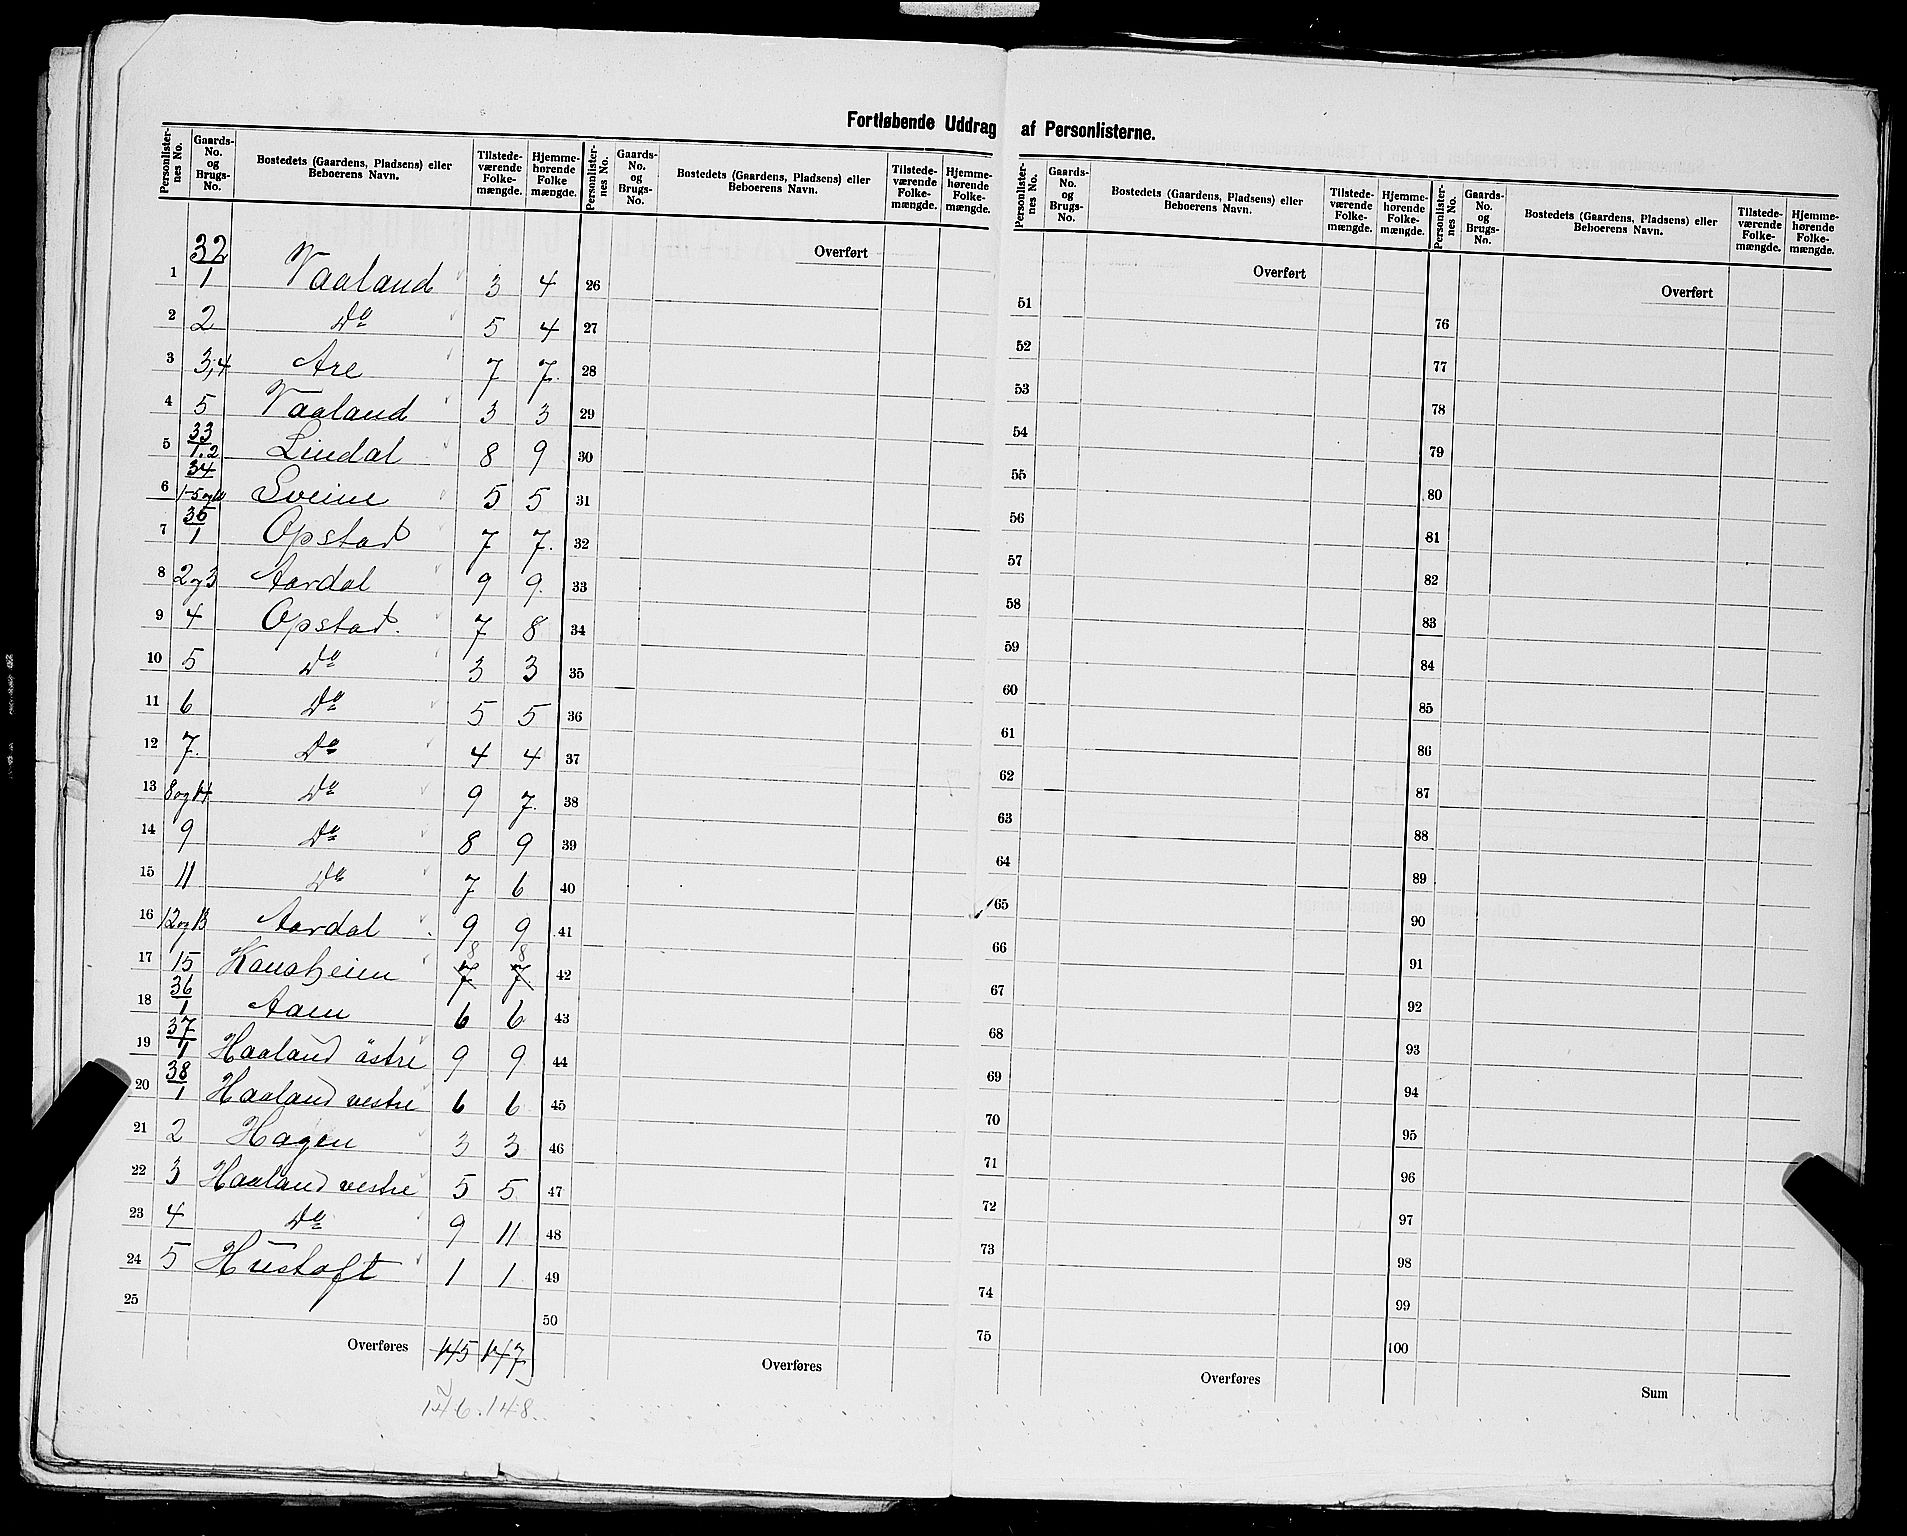 Fortløbende Uddrag af Personlisterne.
Personlister-nes No. | Gaards-No. og Brugs-No. | Bostedets (Gaardens, Pladsens) eller Beboerens Navn. | Tilstede-værende Folke-mængde. | Hjemme-hørende Folke mængde.
1 | 32/1 | Vaaland | 3 | 4
2 | 2 | Do | 5 | 4
3 | 3,4 | Are | 7 | 7.
4 | 5 | Vaaland | 3 | 3
5 | 33/1.2 | Lindal | 8 | 9
6 | 34/1-5 og 10 | Sveine | 5 | 5
7 | 35/1 | Opstad | 7 | 7.
8 | 2 og 3 | Aardal | 9 | 9.
9 | 4 | Opstad. | 7 | 8
10 | 5 | Do | 3 | 3
11 | 6 | Do | 5 | 5
12 | 7. | Do | 4 | 4
13 | 8 og 14 | Do | 9 | 7.
14 | 9 | Do | 8 | 9
15 | 11 | Do | 7 | 6
16 | 12 og 13 | Aardal | 9 | 9
17 | 15 | Kansheim | 7 8 | 7 8
18 | 36/1 | Aam | 6 | 6
19 | 37/1 | Haaland östre | 9 | 9.
20 | 38/1 | Haaland vestre | 6 | 6
21 | 2 | Hagen | 3 | 3
22 | 3 | Haaland vestre | 5 | 5
23 | 4 | Do | 9 | 11
24 | 5 | Hustoft | 1 | 1
25
Overføres | 145 | 147
146. 148.
Personlister-nes No. | Gaards-No. og Brugs-No. | Bostedets (Gaardens, Pladsens) eller Beboerens Navn. | Tilstede-værende Folke-mængde. | Hjemme-hørende Folke-mængde.
Overført
26
27
28
29
30
31
32
33
34
35
36
37
38
39
40
41
42
43
44
45
46
47
48
49
50
Overføres
Personlister-nes No. | Gaards-No. og Brugs-No. | Bostedets (Gaardens, Pladsens) eller Beboerens Navn. | Tilstede-værende Folke-mængde. | Hjemme-hørende Folke-mængde.
Overført
51
52
53
54
55
56
57
58
59
60
61
62
63
64
65
66
67
68
69
70
71
72
73
74
75
Overføres
Personlister-nes No. | Gaards-No. og Brugs-No. | Bostedets (Gaardens, Pladsens) eller Beboerens Navn. | Tilstede-værende Folke-mængde. | Hjemme-hørende Folke-mængde.
Overført
76
77
78
79
80
81
82
83
84
85
86
87
88
89
90
91
92
93
94
95
96
97
98
99
100
Sum